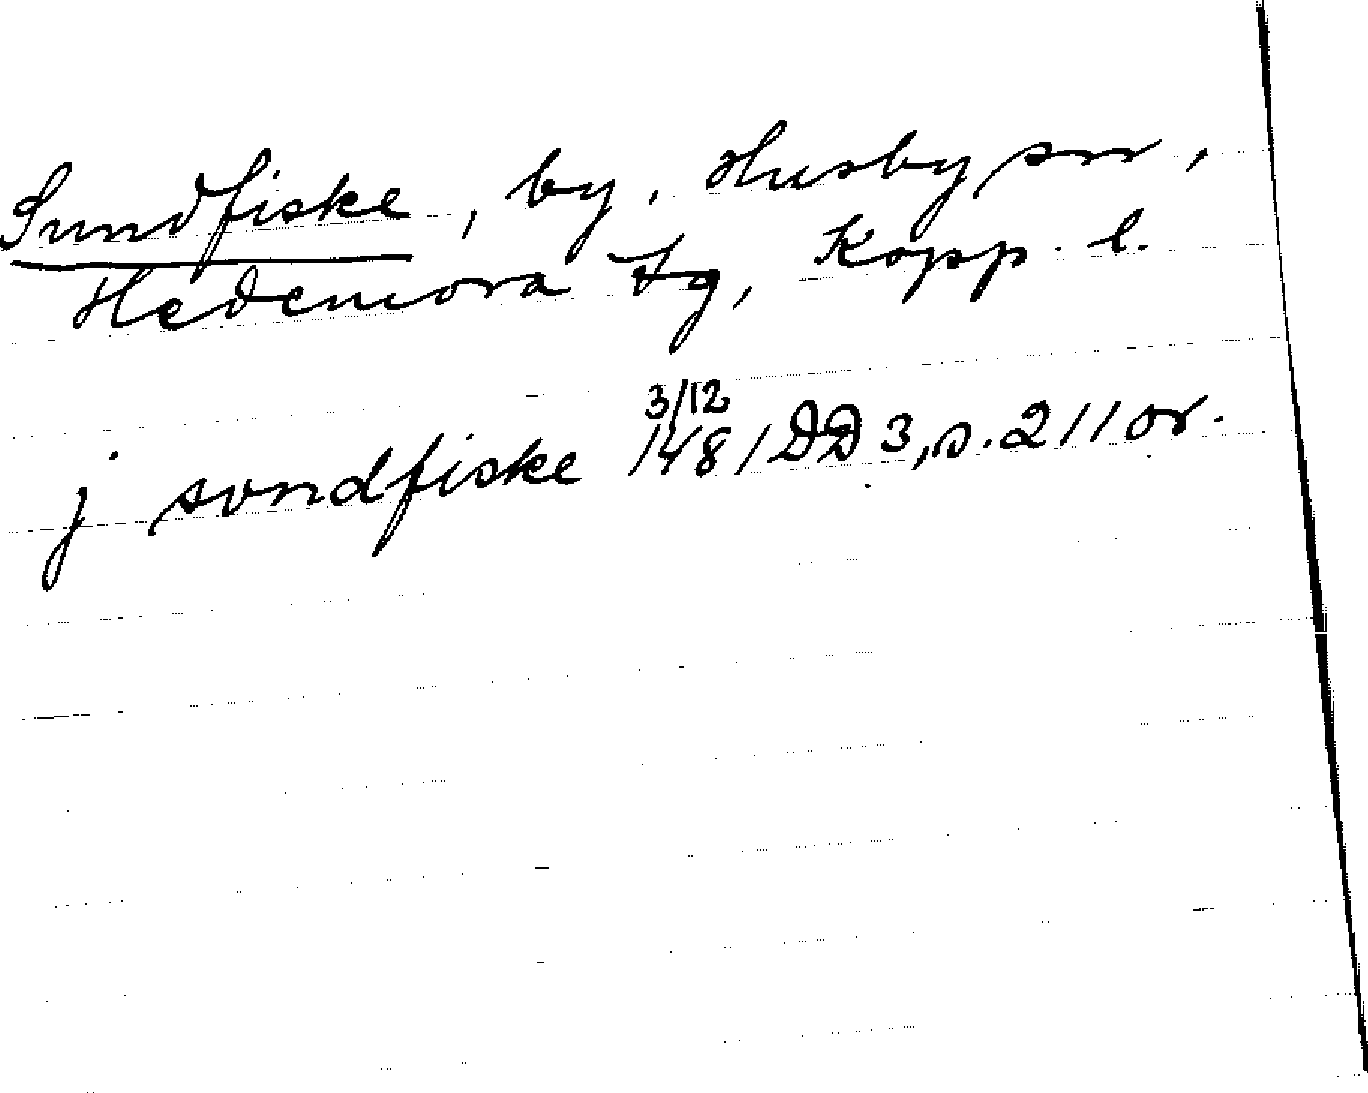 Sundfiske, by, Husby sn,
Hedemora tg, Kopp. l.
j sundfiske 3/12 1481 DD 3, s. 211 or.